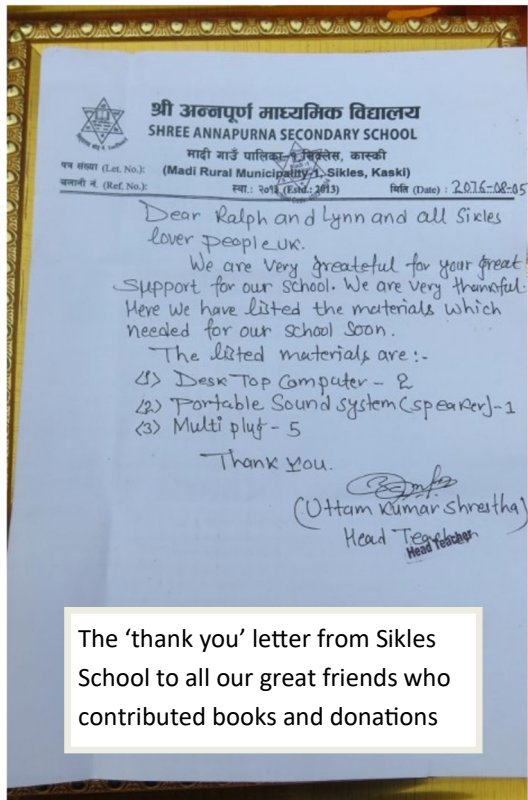 श्री अन्नपूर्ण माध्यमिक विद्यालय
SHREE ANNAPURNA SECONDARY SCHOOL
मादी गाउँ पालिका-१ सिक्लेस, कास्की
पत्र संख्या (Let. No.):
(Madi Rural Municipality-1, Sikles, Kaski)
चलानी नं. (Ref. No.):
स्था.: २०१३ (Estd.: 2013)
मिति (Date) : 2076-08-05
Dear Ralph and Lynn and all Sikles
lover people UK.
We are very greateful for your great
Support for our school. We are very thankful.
Here we have listed the materials which
needed for our school soon.
The listed materials are :-
<1> Desk Top Computer - 2
<2> Portable Sound system (speaker) - 1
<3> Multi plug - 5
Thank you.
(Uttam Kumar Shrestha)
Head Teacher
Head Teacher
The ‘thank you’ letter from Sikles
School to all our great friends who
contributed books and donations